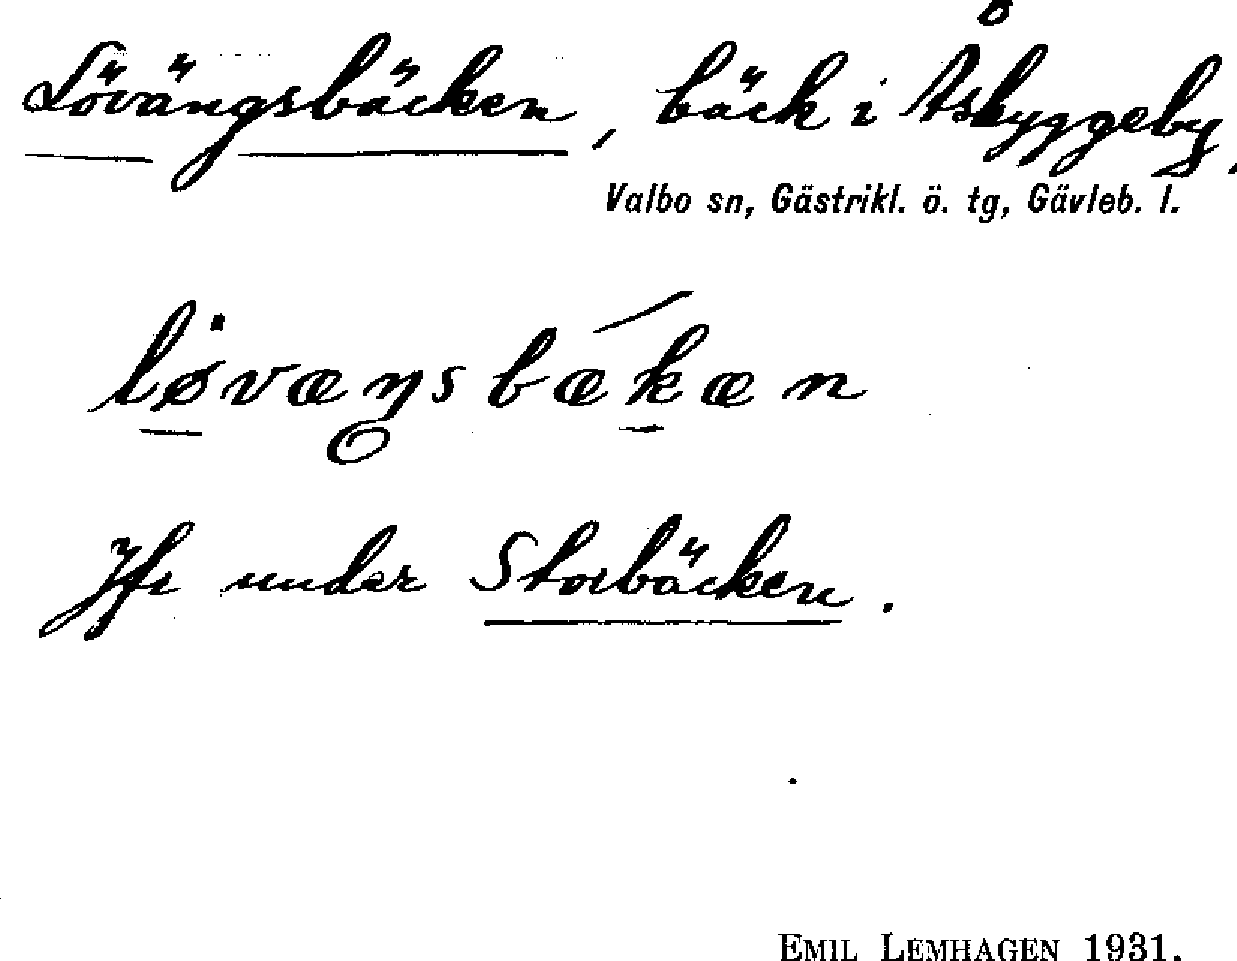 Lövängsbäcken, bäck i Åskyggeby,
Valbo sn, Gästrikl. ö. tg, Gävleb. l.
løvæŋsbækæn
Jfr under Storbäcken.
EMIL LEMHAGEN 1931.